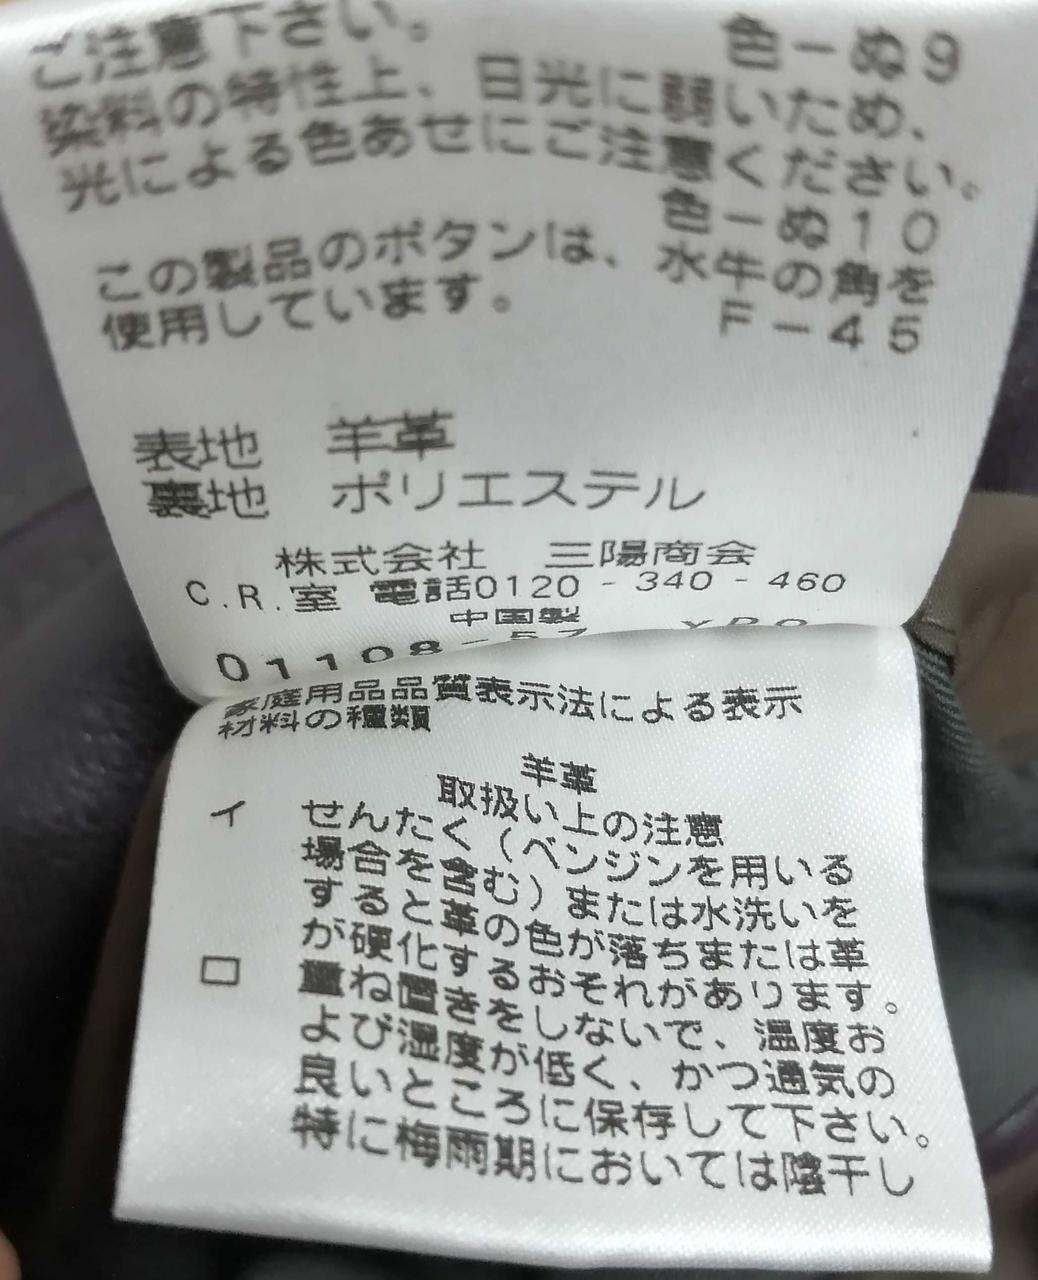 ご注意下さい。
色－ぬ９
染料の特性上、日光に弱いため、
光による色あせにご注意ください。
色－ぬ１０
この製品のボタンは、水牛の角を
使用しています。
Ｆ－４５
表地　羊革
裏地　ポリエステル
株式会社　三陽商会
C.R.室 電話0120 - 340 - 460
中国製
01108-57
家庭用品品質表示法による表示
材料の種類
羊革
取扱い上の注意
イ　せんたく（ベンジンを用いる
場合を含む）または水洗いを
すると革の色が落ちまたは革
が硬化するおそれがあります。
ロ　重ね置きをしないで、温度お
よび湿度が低く、かつ通気の
良いところに保存して下さい。
特に梅雨期においては陰干し